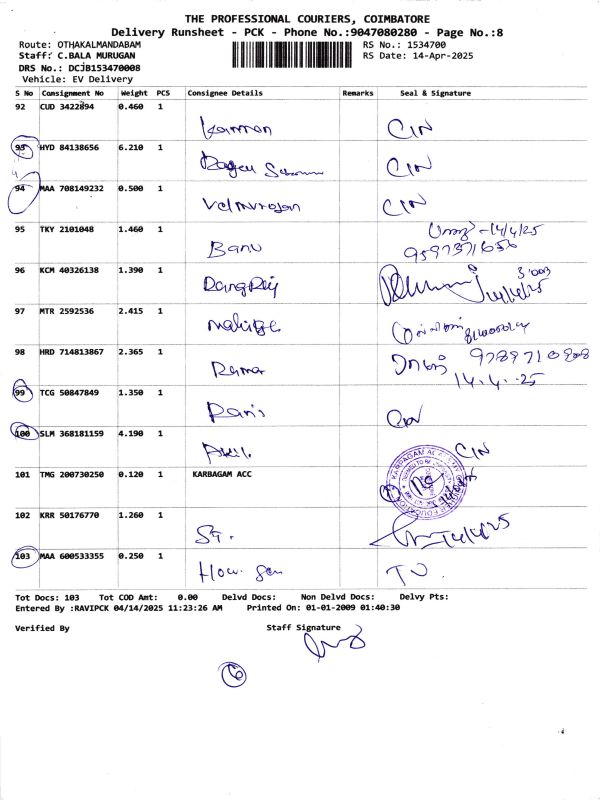 THE PROFESSIONAL COURIERS, COIMBATORE
Delivery Runsheet - PCK - Phone No.:9047080280 - Page No.:8
Route: OTHAKALMANDABAM RS No.: 1534700
Staff: C.BALA MURUGAN RS Date: 14-Apr-2025
DRS No.: DCJB153470008
Vehicle: EV Delivery
S No Consignment No Weight PCS Consignee Details Remarks Seal & Signature
92 CUD 3422894 0.460 1
Kannan CIN
93 HYD 84138656 6.210 1
CIN
94 MAA 708149232 0.500 1
Velmurugan CIN
95 TKY 2101048 1.460 1
Banu 14/4/25
9597371656
96 KCM 40326138 1.390 1
14/4/25
97 MTR 2592536 2.415 1
98 HRD 714813867 2.365 1
Raman 14.4.25
99 TCG 50847849 1.350 1
CIN
100 SLM 368181159 4.190 1
Akil CIN
101 TMG 200730250 0.120 1 KARBAGAM ACC
102 KRR 50176770 1.260 1
ST. 14/4/25
103 MAA 600533355 0.250 1
Tot Docs: 103 Tot COD Amt: 0.00 Delvd Docs: Non Delvd Docs: Delvy Pts:
Entered By :RAVIPCK 04/14/2025 11:23:26 AM Printed On: 01-01-2009 01:40:30
Verified By Staff Signature
6